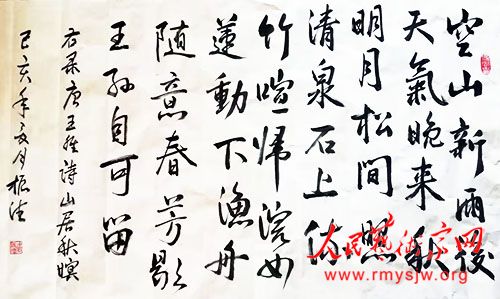 空山新雨後
天氣晚来秋
明月松間照
清泉石上流
竹喧帰浣女
蓮動下漁舟
随意春芳歇
王孙自可留
右录唐王维诗山居秋暝
己亥年夏月
人民藝術家网
www.rmysjw.org